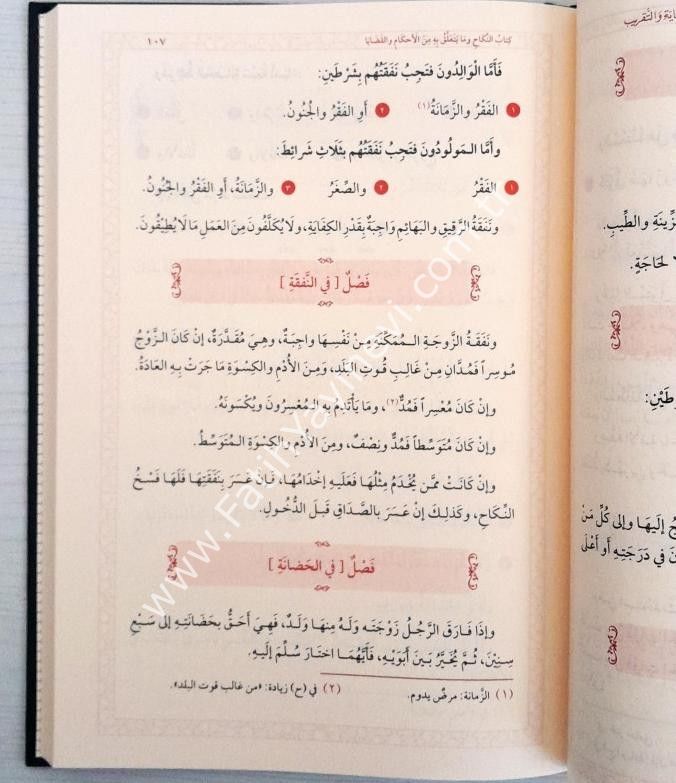 كتاب النكاح وما يتعلق به من الأحكام والقضايا ١٠٧
فَأَمَّا الْوَالِدُونَ فَتَجِبُ نَفَقَتُهُم بِشَرْطَينِ:
١ الفَقْرُ والزَّمَانَةُ(١) ٢ أَوِ الفَقْرُ والجُنُونُ.
وأَمَّا المَولُودُونَ فَتَجِبُ نَفَقَتُهُم بِثَلَاثِ شَرائِطَ:
١ الفَقْرُ ٢ والصِّغَرُ ٣ والزَّمَانَةُ، أَوِ الفَقْرُ والجُنُونُ.
ونَفَقَةُ الرَّقِيقِ والبَهَائِمِ وَاجِبَةٌ بِقَدْرِ الكِفَايَةِ، ولَا يُكَلَّفُونَ مِنَ العَمَلِ مَا لَا يُطِيقُونَ.
فَصْلٌ [ في النَّفَقَةِ ]
ونَفَقَةُ الزَّوجَةِ المُمَكِّنَةِ مِنْ نَفْسِهَا واجِبَةٌ، وهِيَ مُقَدَّرَةٌ، إنْ كَانَ الزَّوْجُ
مُوسِراً فَمُدَّانِ مِنْ غَالِبِ قُوتِ البَلَدِ، ومِنَ الأُدُمِ والكِسْوَةِ مَا جَرَتْ بِهِ العَادَةُ.
وإنْ كَانَ مُعْسِراً فَمُدٌّ(٢)، ومَا يَأْتَدِمُ بِهِ المُعْسِرُونَ ويُكْسَونَهُ.
وإنْ كَانَ مُتَوَسِّطاً فَمُدٌّ ونِصْفٌ، ومِنَ الأُدْمِ والكِسْوَةِ المُتَوَسِّطُ.
وإنْ كَانَتْ مِمَّن يُخْدَمُ مِثْلُهَا فَعَلَيهِ إخْدَامُهَا، فَإنْ عَسَرَ بِنَفَقَتِهَا فَلَهَا فَسْخُ
النِّكَاحِ، وكَذلِكَ إنْ عَسَرَ بِالصَّدَاقِ قَبلَ الدُّخُولِ.
فَصْلٌ [ في الحَضَانَةِ ]
وإذَا فَارَقَ الرَّجُلُ زَوْجَتَه ولَهُ مِنهَا ولَدٌ، فَهِيَ أَحَقُّ بِحَضَانَتِهِ إلى سَبْعِ
سِنِيْنَ، ثُمَّ يُخَيَّرُ بَينَ أَبَوَيهِ، فَأَيَّهُمَا اخْتَارَ سُلِّمَ إلَيهِ.
(١) الزَّمانة: مرضٌ يدوم. (٢) في (ح) زيادة: «من غالب قوت البلد».
ـايَةِ والتَّقريب
ـزِّينَةِ والطِّيبِ.
لحَاجَةٍ.
ـرْطَيْنِ:
ـجُ إلَيهَا وإلى كُلِّ مَنْ
ـنَ في دَرَجَتِهِ أَو أَعْلَى
www.FatihYayinevi.com.tr